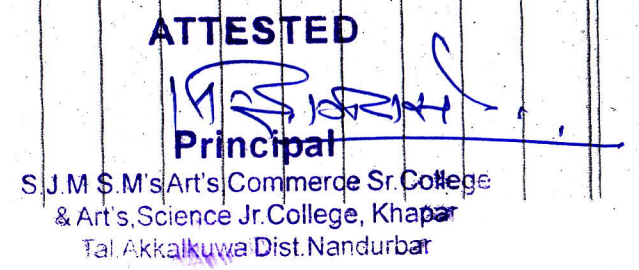 ATTESTED
Principal
S.J.M S.M's Art's Commerce Sr.College
& Art's,Science Jr.College, Khapar
Tal.Akkalkuwa Dist.Nandurbar